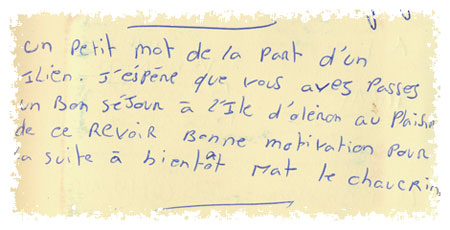 un Petit mot de la Part d'un
Ilien. J'espère que vous aves Passes
un Bon séjour à l'Ile d'oléron au Plaisir
de ce Revoir Bonne motivation Pour
la suite à bientôt Mat le chaucrin